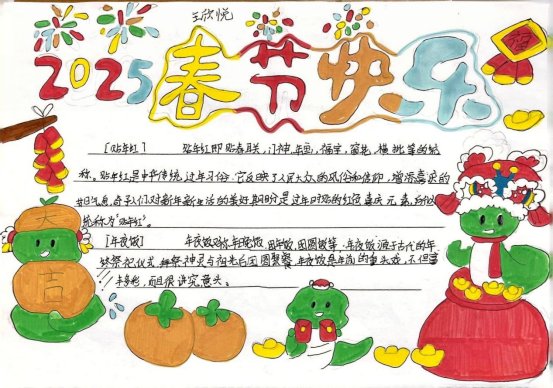 王欣悦
2025春节快乐
福
[贴年红] 贴年红即贴春联,门神,年画,福字,窗花,横批等的统
称。贴年红是中华传统过年习俗,它反映了人民大众的风俗和信仰,增添喜庆的
节日气息,寄予人们对新年新生活的美好期盼。是过年时贴的红色喜庆元素,所以
统称为“贴年红”。
[年夜饭] 年夜饭又称年晚饭,团年饭,团圆饭等,年夜饭源于古代的年
终祭祀仪式,拜祭神灵与祖先后团圆聚餐,年夜饭是年前的重头戏,不但
丰多彩,而且很讲究意头。
大
吉